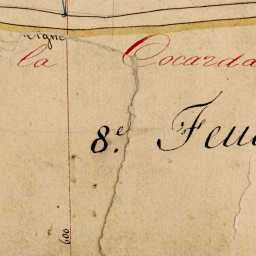 Ligne
la Cocarda
8.e Feui
600